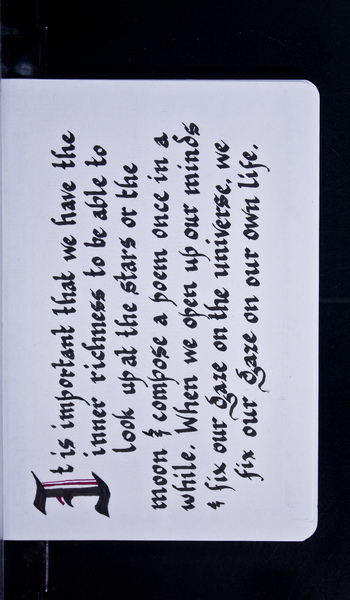 It is important that we have the
inner richness to be able to
look up at the stars or the
moon & compose a poem once in a
while. When we open up our minds
& fix our gaze on the universe, we
fix our gaze on our own life.